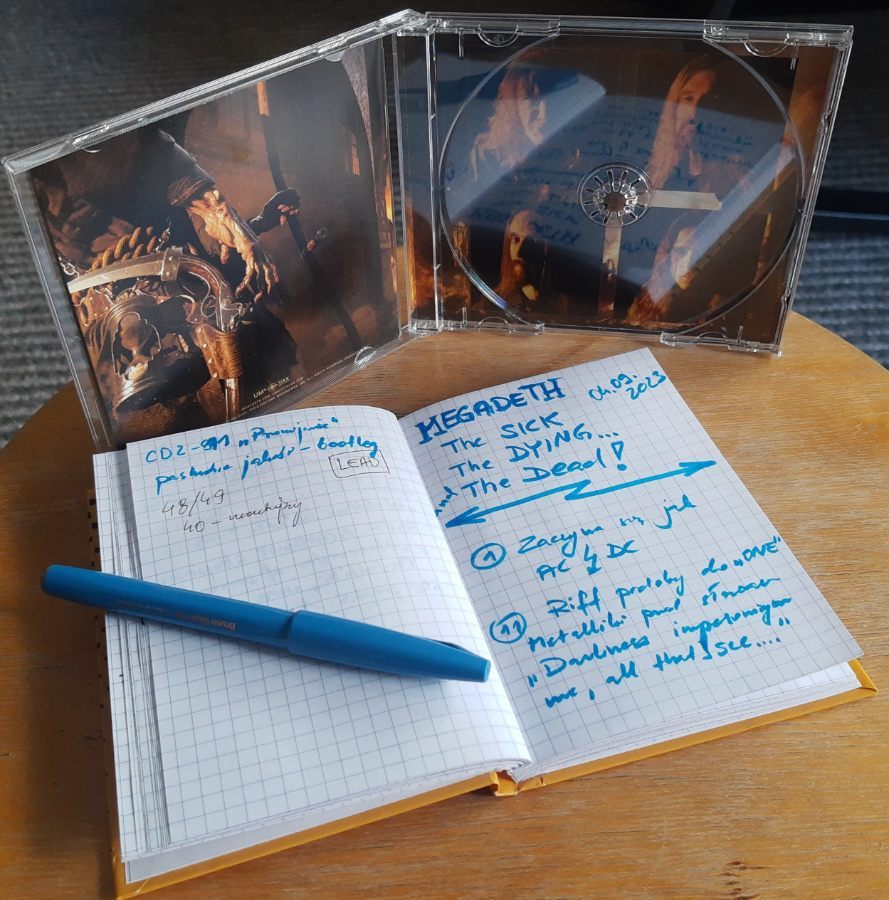 CD2-9/11 „Promijnie"
paskudna jakość - bootleg
LEAD
48/49
40 -
MEGADETH
04.09.
2023
The SICK
The DYING...
and The Dead!
1 Zaczyna się jak
AC ϟ DC
11 Riff podobny do „ONE"
Metalliki pod słowa
„Darkness imprisoning
me, all that I see...."
Brush Sign Pen